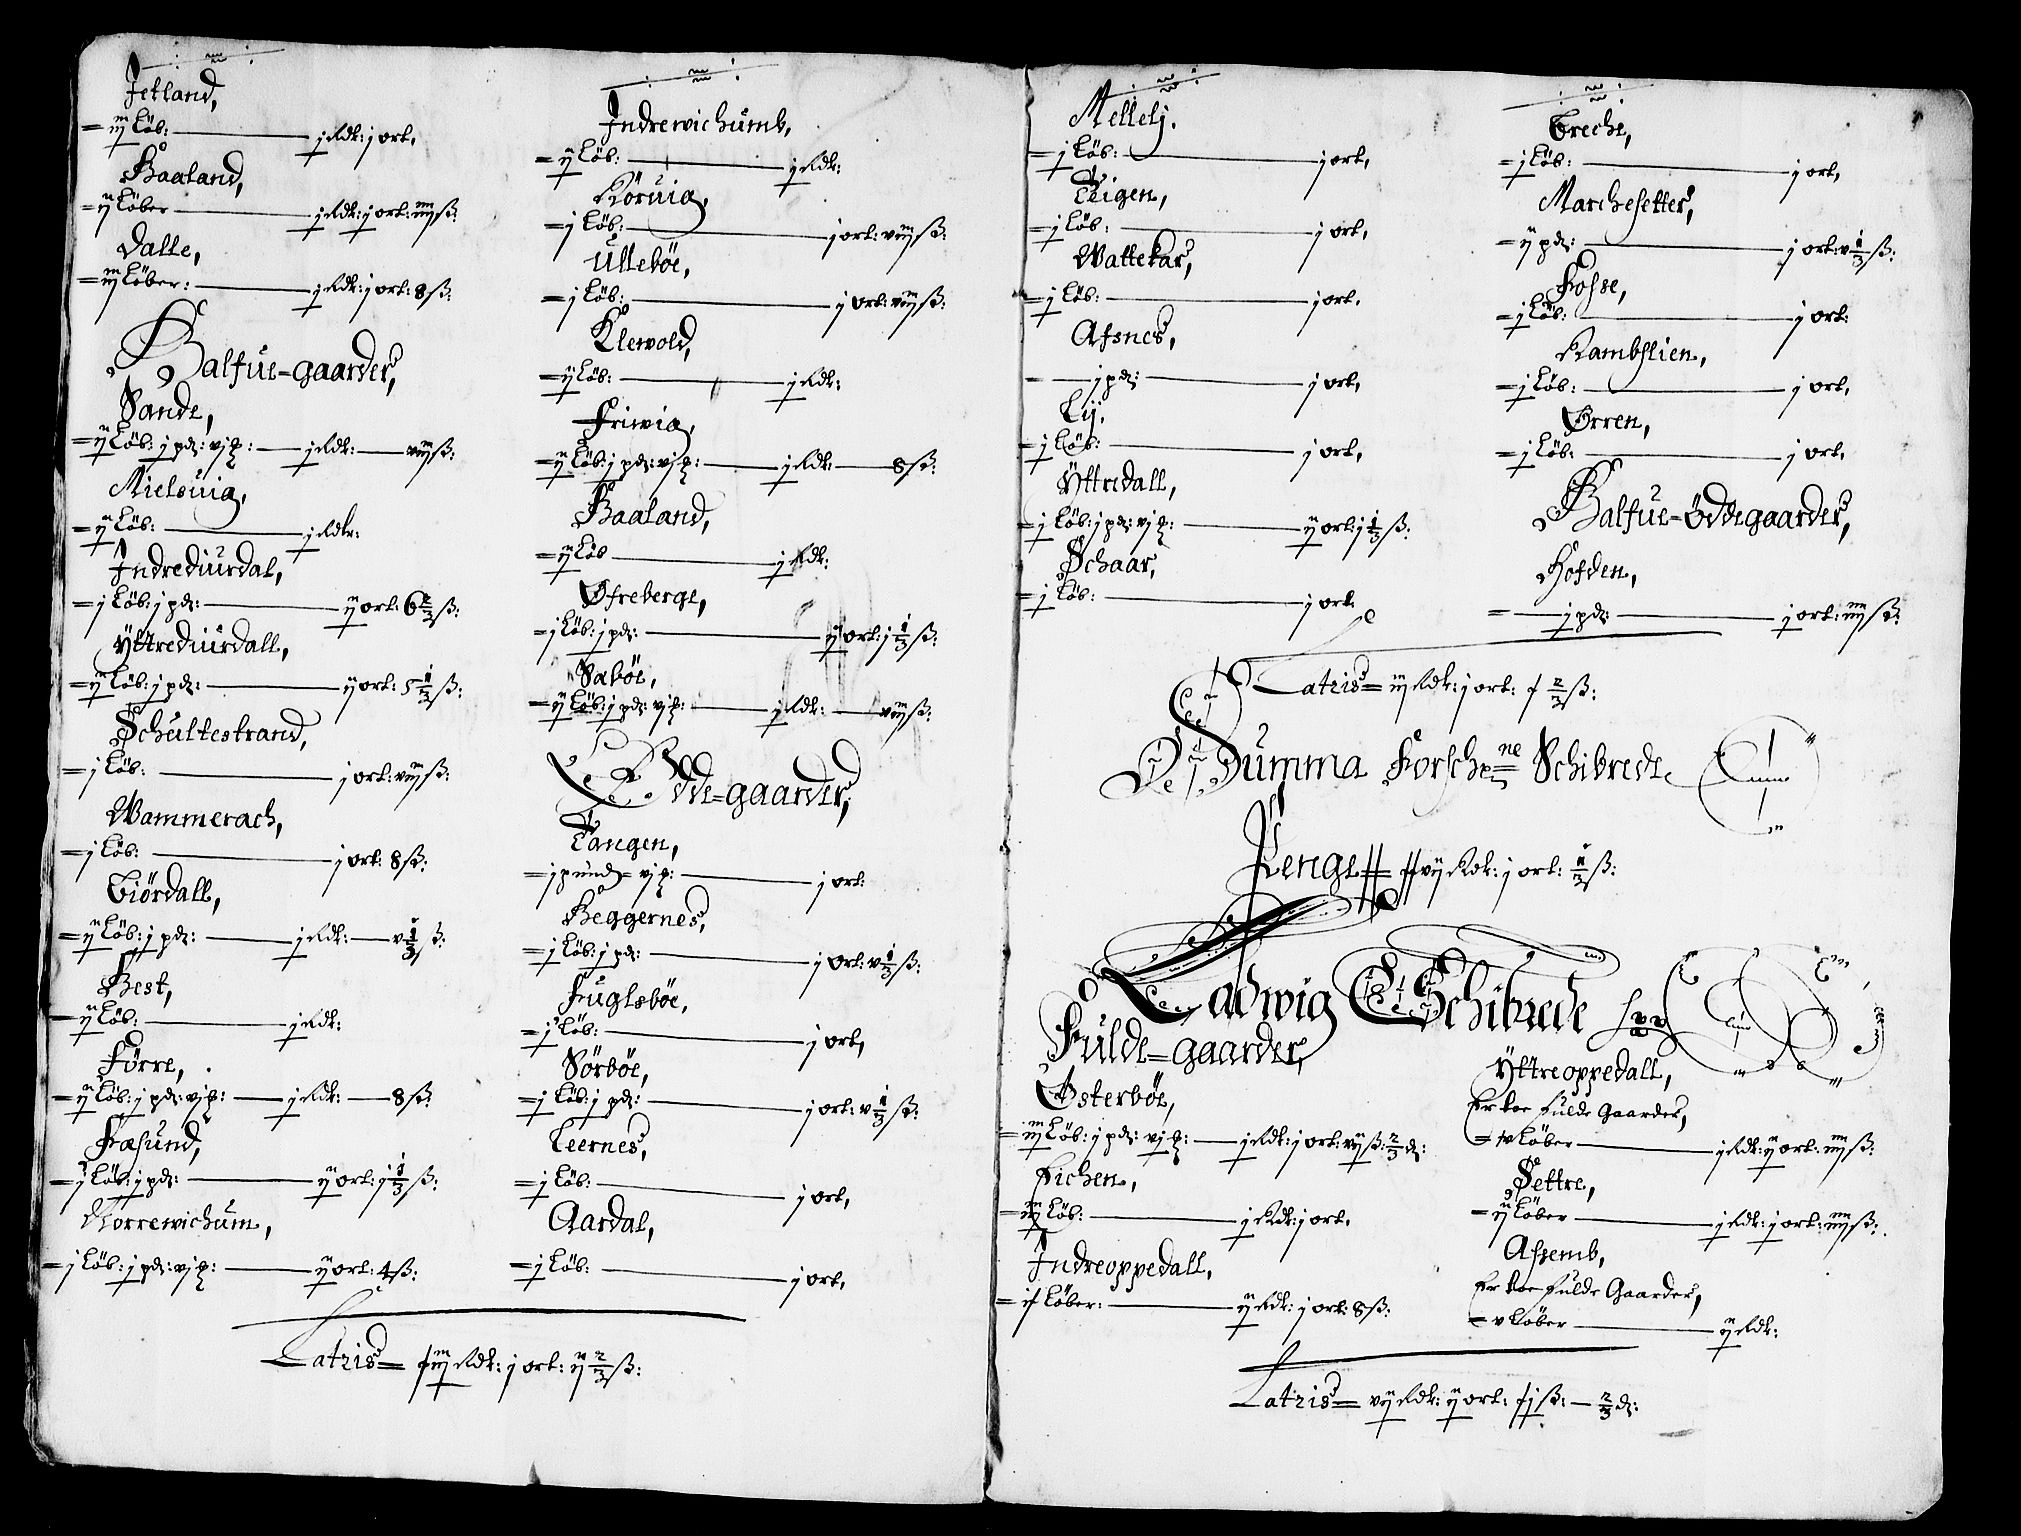 Jetland,
= iij Löb: j Rdr: j ort,
Haaland,
= ij Löber j Rdr: j ort: iiij ß:
Dalle,
= iij Löber: j Rdr: j ort: 8 ß:
Halfue-gaarder,
Sande,
= ij Löb: j pd: vj ℔: j Rdr: viij ß:
Mielsuig,
= ij Löb: j Rdr:
Indrediurdal,
= j Löb: j pd: ij ort: 6 2/3 ß:
Yttrediurdall,
= ij Löb: j pd: ij ort: 5 1/3 ß:
Schultestrand,
= j Löb: j ort: viij ß:
Wammerach,
= j Löb: j ort: 8 ß:
Giördall,
= ij Löb: j pd: j Rdr: v 1/3 ß:
Best,
= ij Löb: j Rdr:
Förre,
= ij Löb: j pd: vj ℔: j Rdr: 8 ß:
Fæsund,
= j Löb: j pd: ij ort: j 1/3 ß:
Norrewichum,
= j Löb: j pd: vj ℔: ij ort: 4 ß:
Indrewichumb,
= ij Löb: j Rdr:
Rörvig,
= j Löb: j ort: viij ß:
Ulleböe,
= j Löb: j ort: viij ß:
Klewold,
= ij Löb: j Rdr:
Friwig,
= ij Löb: j pd: vj ℔: j Rdr: 8 ß:
Haaland,
= ij Löb j Rdr:
Øfreberge,
= j Löb: j pd: ij ort: j 1/3 ß:
Saböe,
= ij Löb: j pd: vj ℔: j Rdr: viij ß:
Ødde-gaarder,
Tangen,
= j pund vj ℔: j ort:
Heggernes,
= j Löb: j pd: j ort: v 1/3 ß:
Fuglsböe,
= j Löb: j ort,
Sörböe,
= j Löb: j pd: j ort: v 1/3 ß:
Leernes,
= j Löb: j ort,
Aardal,
= j Löb: j ort,
Latris = Rdr: j ort: ij 2/3 ß:
Mellelj.
= j Löb: j ort,
Teigen,
= j Löb: j ort,
Wattekar,
= j Löb: j ort.
Afsnes,
j pd: j ort,
Lij,
= j Löb: j ort,
Yttredall,
= j Löb: j pd: vj ℔: ij ort: j 1/3 ß:
Schaar,
= j Löb: j ort.
Breche,
= j Löb: j ort,
Marchesetter,
= ij pd: j ort: v 1/3 ß:
Fosse,
= j Löb: j ort:
Rambslien,
= j Löb: j ort,
Ørren,
= j Löb: j ort,
Halfue-Öddegaarder,
Hofden,
j pd: j ort: iiij ß:
Latris = iij Rdr: j ort: 2/3 ß:
Summa Forschne Schibrede
Penge vij Rdr: j ort: 1/3 ß:
Ladwig Schibrede
Fulde-gaarder,
Østerböe,
= iij Löb: j pd: vj ℔: j Rdr: j ort: vij ß: 2/3 d:
Eichen,
= iij Löb: j Rdr: j ort.
Indreoppedall,
Löber: ij Rdr: j ort: 8 ß:
Yttreoppedall,
Er toe Fulde Gaarder,
= iv Löber j Rdr: ij ort: iiij ß:
Settre,
= ij Löber j Rdr: j ort: iiij ß:
Assemb,
Er toe Fulde Gaarder,
= v Löber ij Rdr:
Latris = vij Rdr: ij ort: ß: 2/3 d: